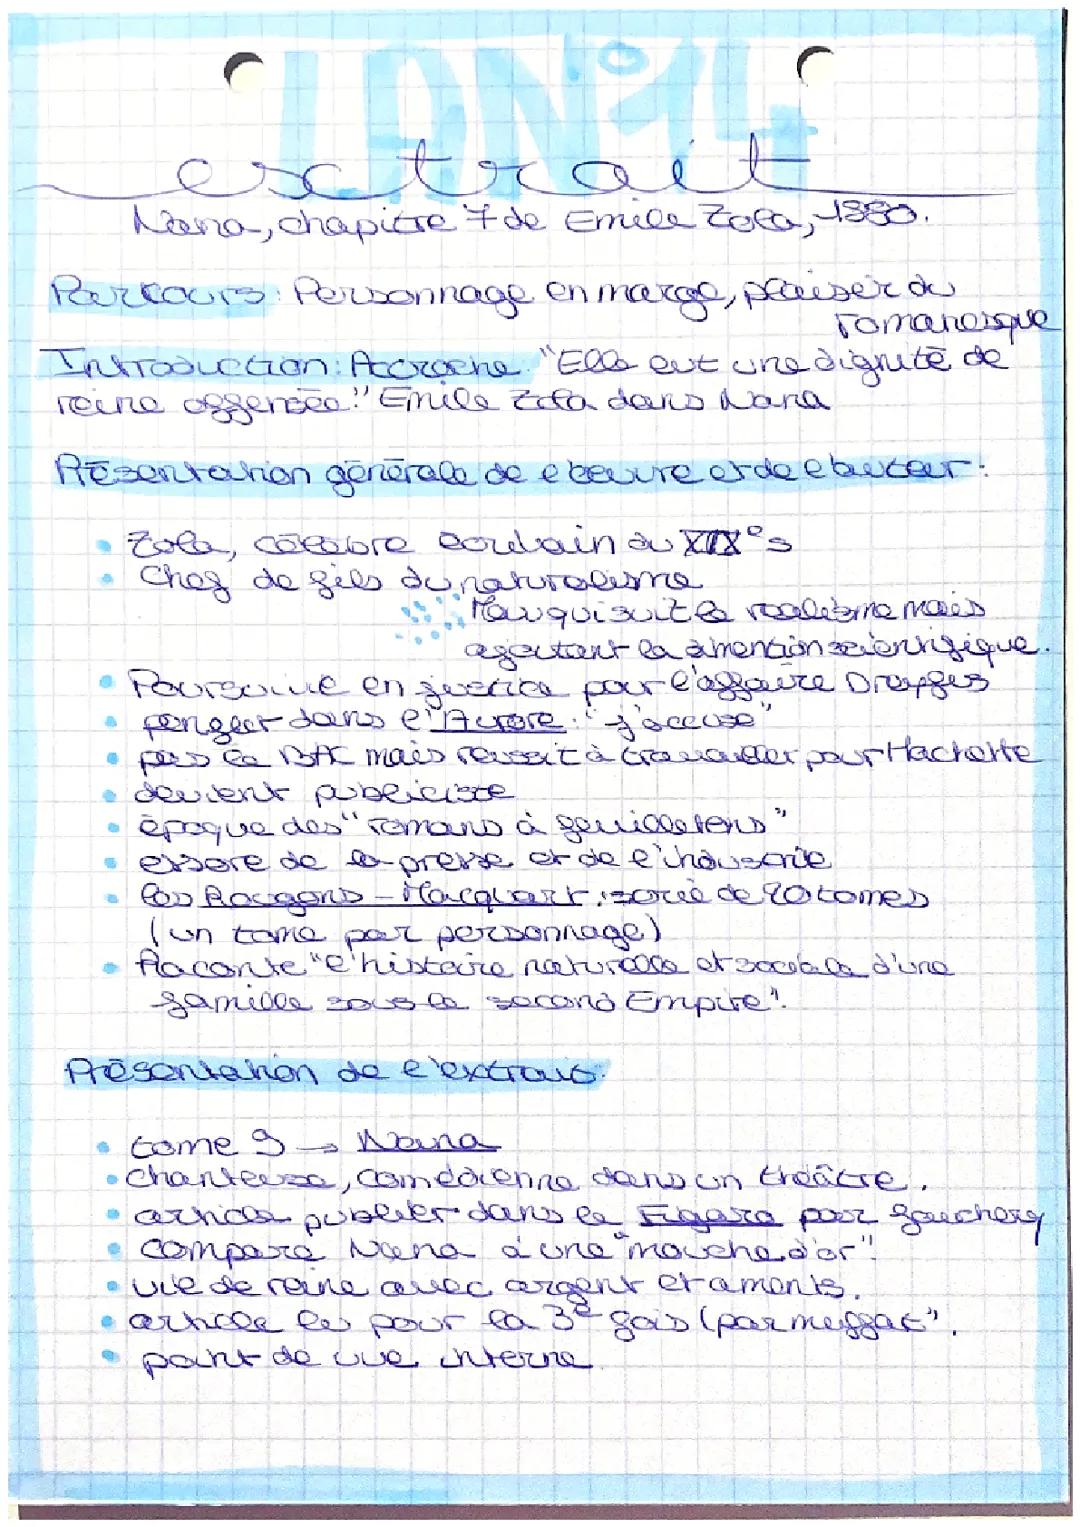 LAN°14
extrait
Nana, chapitre 7 de Emile Zola, 1880.
Parcours: Personnage en marge, plaisir du
romanesque
Introduction: Accroche "Elle eut une dignité de
reine offensée." Emile Zola dans Nana
Présentation générale de l'œuvre et de l'auteur:
• Zola, célèbre écrivain du XIX es
• Chef de fils du naturalisme
Mouv qui suit le realisme mais
ajoutant la dimention scientifique.
• Poursuivie en justice pour l'affaire Dreyfus
• dans l'Aurore: "j'accuse"
• pas le BAC mais reussit à travailler pour Hachette
• devient publiciste
• époque des "romans à feuilletons"
• essore de la presse et de l'industrie
• Les Rougons - Macquart: série de 20 tomes
(un tome par personnage)
• Raconte "l'histoire naturelle et sociale d'une
famille sous le second Empire".
Présentation de l'extrait:
• tome 9 → Nana
• chanteuse, comédienne dans un théâtre.
• article publier dans le Figaro par fauchery
• compare Nana à une "mouche d'or".
• vie de reine avec argent et aments.
• article lu pour la 3e fois (par muffat".
• point de vue interne